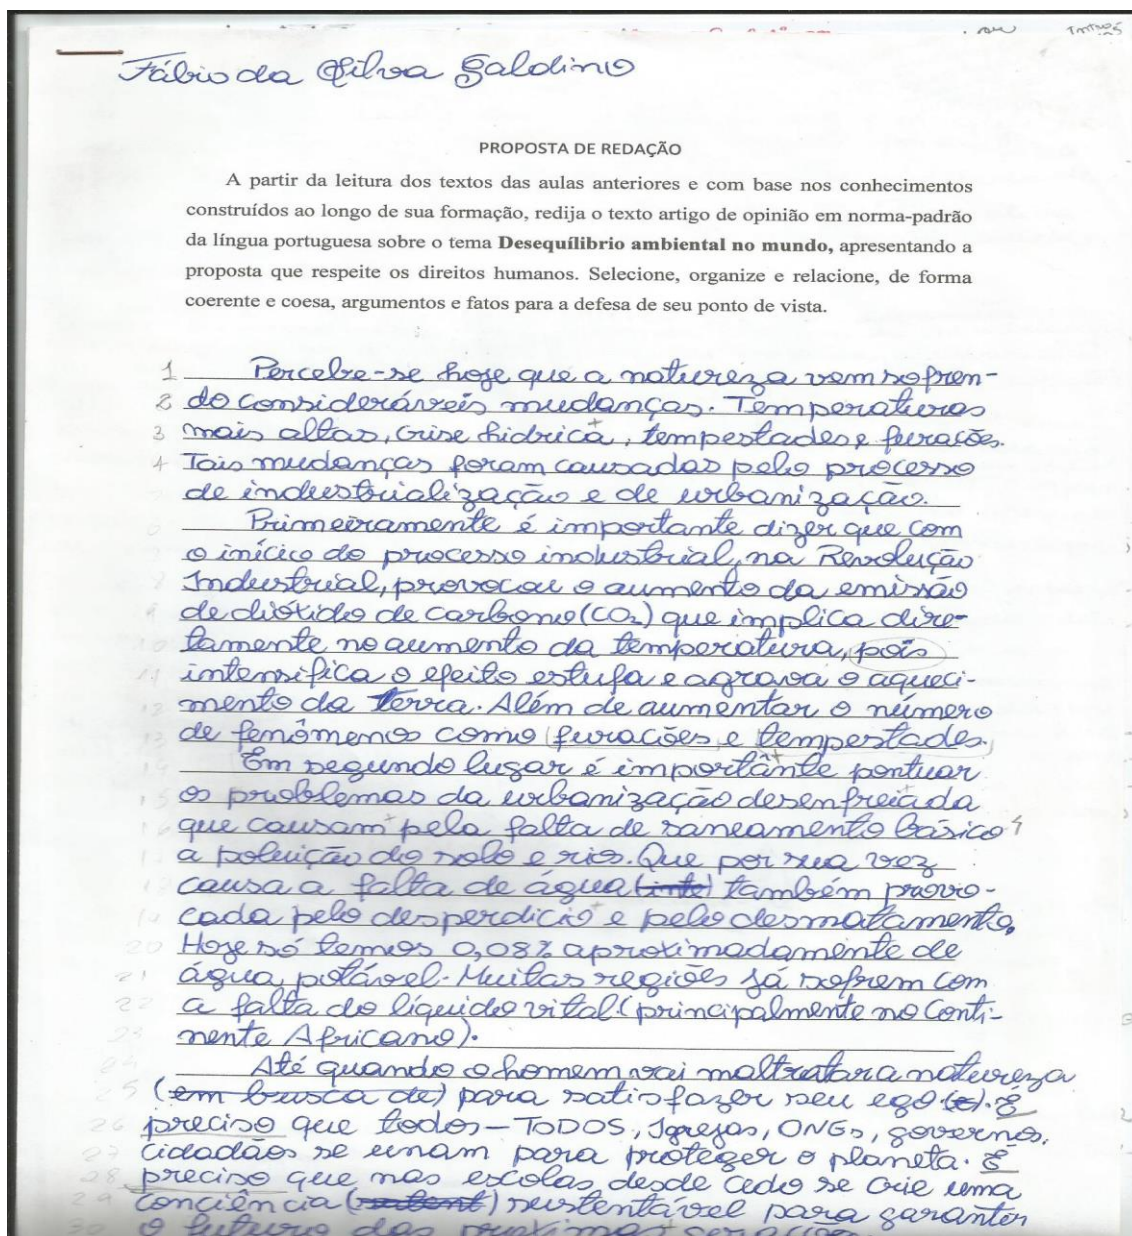 Fábio da Silva Galdino
PROPOSTA DE REDAÇÃO
A partir da leitura dos textos das aulas anteriores e com base nos conhecimentos
construídos ao longo de sua formação, redija o texto artigo de opinião em norma-padrão
da língua portuguesa sobre o tema Desequílibrio ambiental no mundo, apresentando a
proposta que respeite os direitos humanos. Selecione, organize e relacione, de forma
coerente e coesa, argumentos e fatos para a defesa de seu ponto de vista.
1 Percebe-se hoje que a natureza vem sofren-
2 do consideráveis mudanças. Temperaturas
3 mais altas, crise hidrica, tempestades e furacões.
4 Tais mudanças foram causadas pelo processo
de industrialização e de urbanização.
Primeiramente é importante dizer que com
o início do processo industrial, na Revolução
Industrial, provocou o aumento da emissão
de dióxido de carbono (CO₂) que implica dire-
tamente no aumento da temperatura, pois
intensifica o efeito estufa e agrava o aqueci-
mento da terra. Além de aumentar o número
de fenômenos como furacões e tempestades.
Em segundo lugar é importante pontuar
os problemas da urbanização desenfreada
que causam pela falta de saneamento básico
a poluição do solo e rios. Que por sua vez
causa a falta de água (inte) também provo-
cada pelo desperdicio e pelo desmatamento.
20 Hoje só temos 0,08% aproximadamente de
21 água potável. Muitas regiões já sofrem com
22 a falta do líquido vital (principalmente no Conti-
23 nente Africano).
24 Até quando o homem vai maltratar a natureza
25 (em busca de) para satisfazer seu ego (e). É
26 preciso que todos - TODOS, Igrejas, ONGs, governos,
27 cidadãos se unam para proteger o planeta. É
28 preciso que nas escolas desde cedo se crie uma
29 conciência sustentável para garanter
30 o futuro das proximas gerações